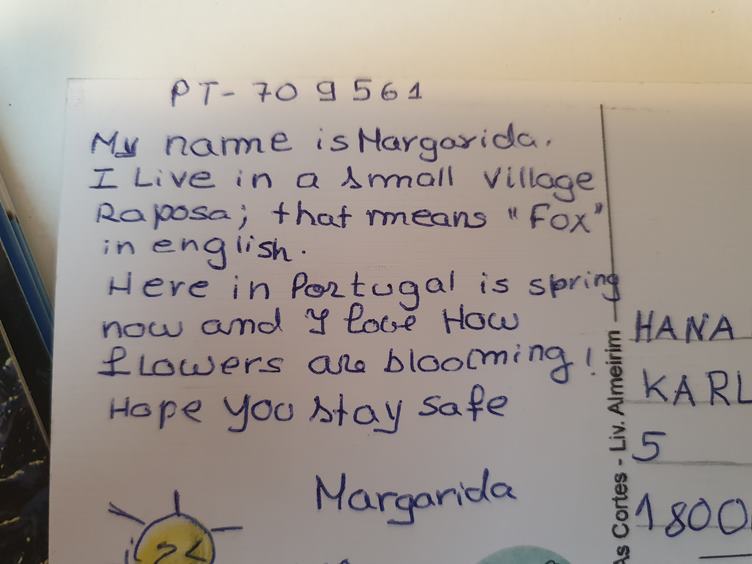 PT-709561
My name is Margarida.
I Live in a small village
Raposa; that means "Fox"
in english.
Here in Portugal is spring
now and I love How
flowers are blooming!
Hope you stay safe
Margarida
HANA
KARL
5
1800
As Cortes - Liv. Almeirim